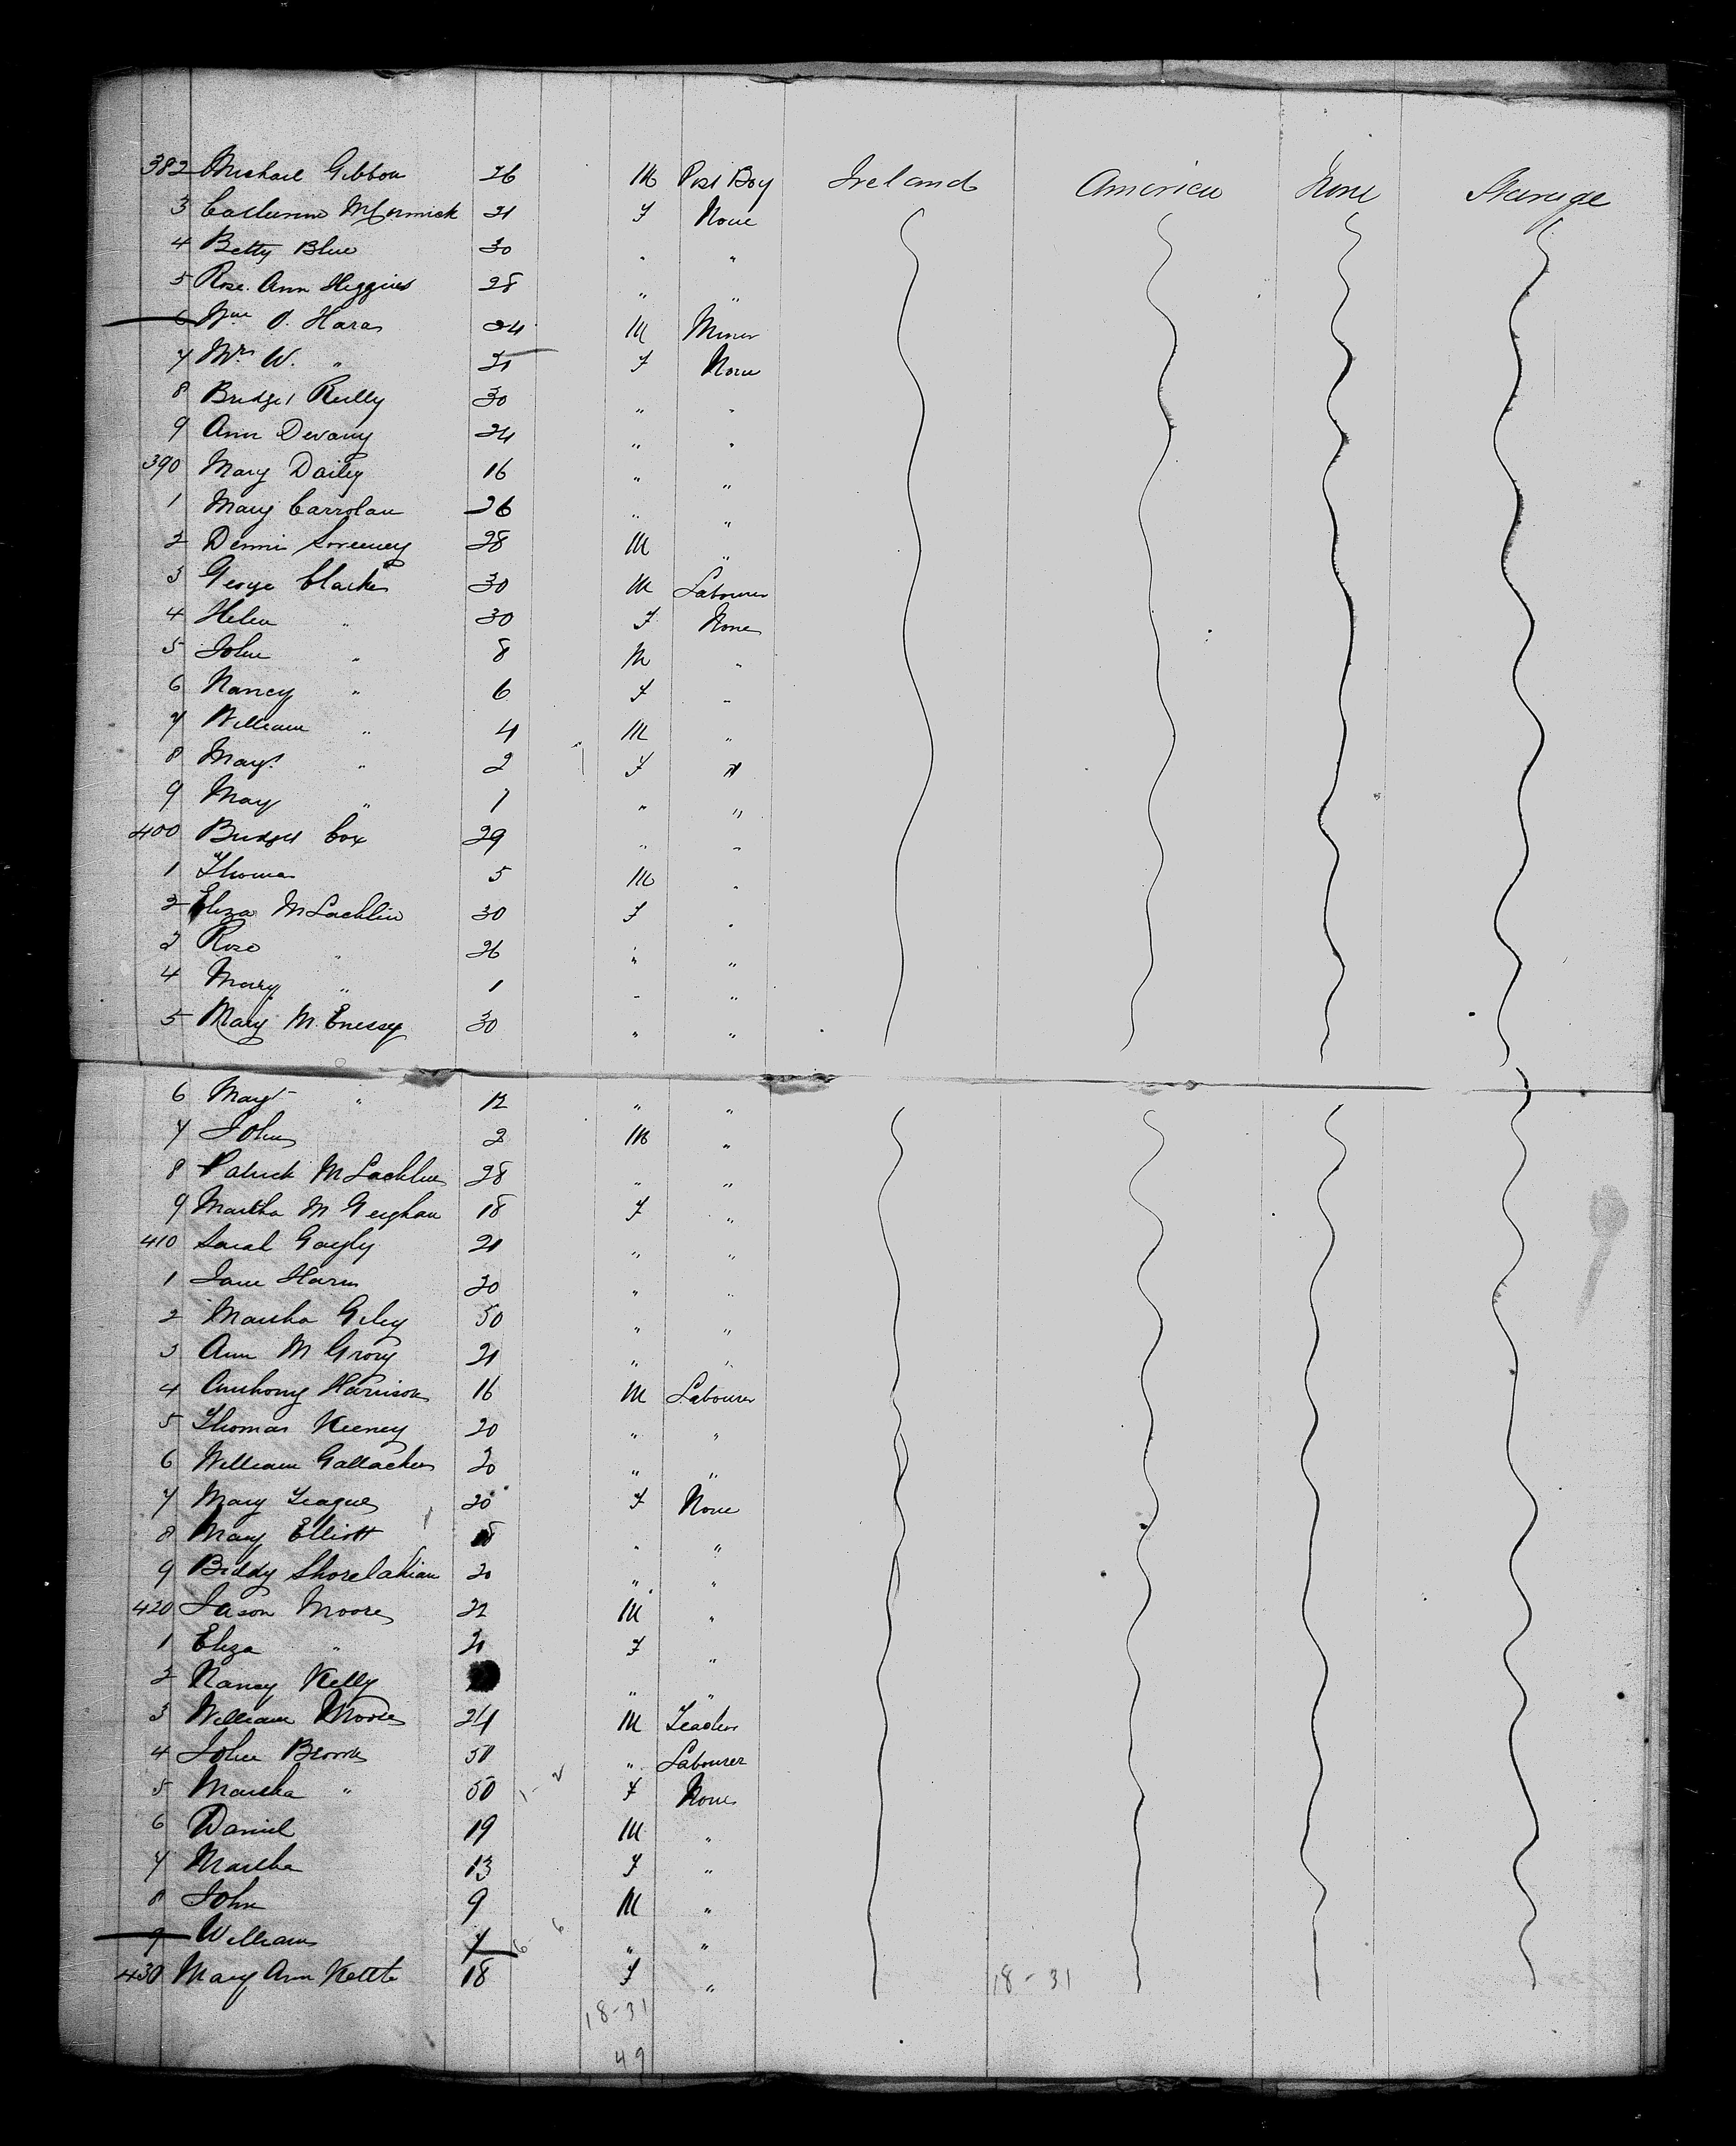 382 Michael Gibbon 26 M Post Boy Ireland America None Steerage
3 Catherine McCormick 21 F None
4 Betty Blue 30 " "
5 Rose Ann Higgins 28 " "
6 Wm O. Hara 24 M Miner
7 Mrs W. " 21 F None
8 Bridget Reilly 30 " "
9 Ann Devany 24 " "
390 Mary Dailey 16 " "
1 Mary Carrolan 26 " "
2 Dennis Sweeney 28 M "
3 George Clarke 30 M Labourer
4 Helen " 30 F None
5 John " 8 M "
6 Nancy " 6 F "
7 William " 4 M "
8 Margt " 2 F "
9 Mary " 1 " "
400 Bridget Cox 29 " "
1 Thomas 5 M "
2 Eliza McLachlin 30 F "
3 Rose " 26 " "
4 Mary " 1 " "
5 Mary M. Enessy 30 " "
6 Margt " 12 " "
7 John 2 M "
8 Patrick McLachlin 28 " "
9 Martha M Geighan 18 F "
410 Sarah Gayly 21 " "
1 Jane 20 " "
2 Martha Giley 50 " "
3 Ann M Grory 21 " "
4 Anthony Harrison 16 M Labourer
5 Thomas Keeney 20 " "
6 William Gallacher 20 " "
7 Mary Teague 20 F None
8 Mary Elliott " "
9 Biddy 20 " "
420 Jason Moore 22 M "
1 Eliza " 21 F "
2 Nancy Kelly " "
3 William Moore 24 M Teacher
4 John Brown 51 " Labourer
5 Martha " 50 F None
6 Daniel 19 M "
7 Martha 13 F "
8 John 9 M "
9 William 7 " "
430 Mary Ann Kettle 18 F "
18-31 18-31
49